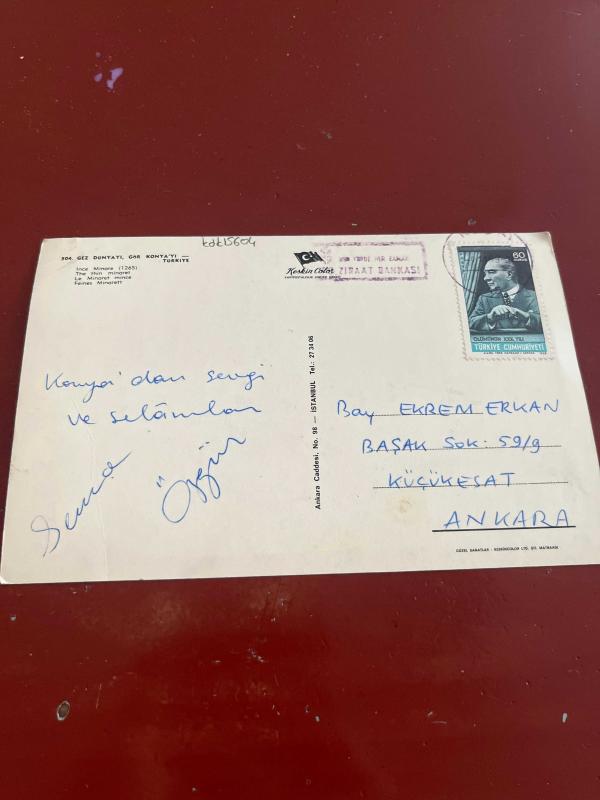 kdk15604
504. GEZ DÜNYAYI, GÖR KONYA'YI —
TÜRKİYE
İnce Minare (1265)
The thin minaret
Le Minaret mince
Feines Minarett
Keskin Color
HER YERDE HER ZAMAN
ZİRAAT BANKASI
60
ÖLÜMÜNÜN XXX. YILI
TÜRKİYE CUMHURİYETİ
Konya'dan sevgi
ve selâmlar
Özgür
Ankara Caddesi, No. 98 — İSTANBUL Tel.: 27 34 06
Bay EKREM ERKAN
BAŞAK Sok: 59/9
KÜÇÜKESAT
ANKARA
GÜZEL SANATLAR - KESKİNCOLOR LTD. ŞTİ. MATBAASI